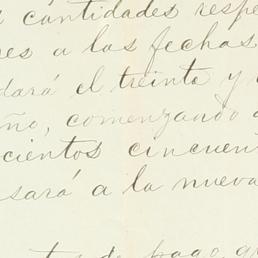 cantidades respe
es a las fechas
dará el treinta y
ño, comenzando
cientos cincuen
sará a la nueva
de pago